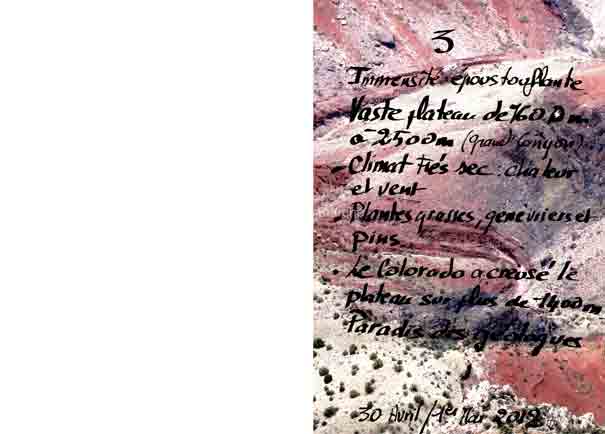 3
Immensité époustouflante
Vaste plateau de 1600m
à 2500m (grand Canyon)
- Climat très sec : chaleur
et vent
- Plantes grasses, genevriers et
pins
. Le Colorado a creusé le
plateau sur plus de 1400m
Paradis des géologues
30 Avril / 1er Mai 2012